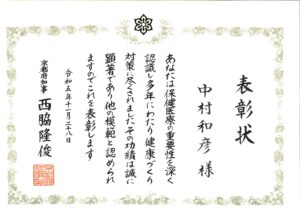 表彰状
中村和彦 様
あなたは保健医療の重要性を深く
認識し多年にわたり健康づくり
対策に尽くされましたその功績は誠に
顕著であり他の模範と認められ
ますのでこれを表彰します
令和五年十一月二十八日
京都府知事 西脇隆俊